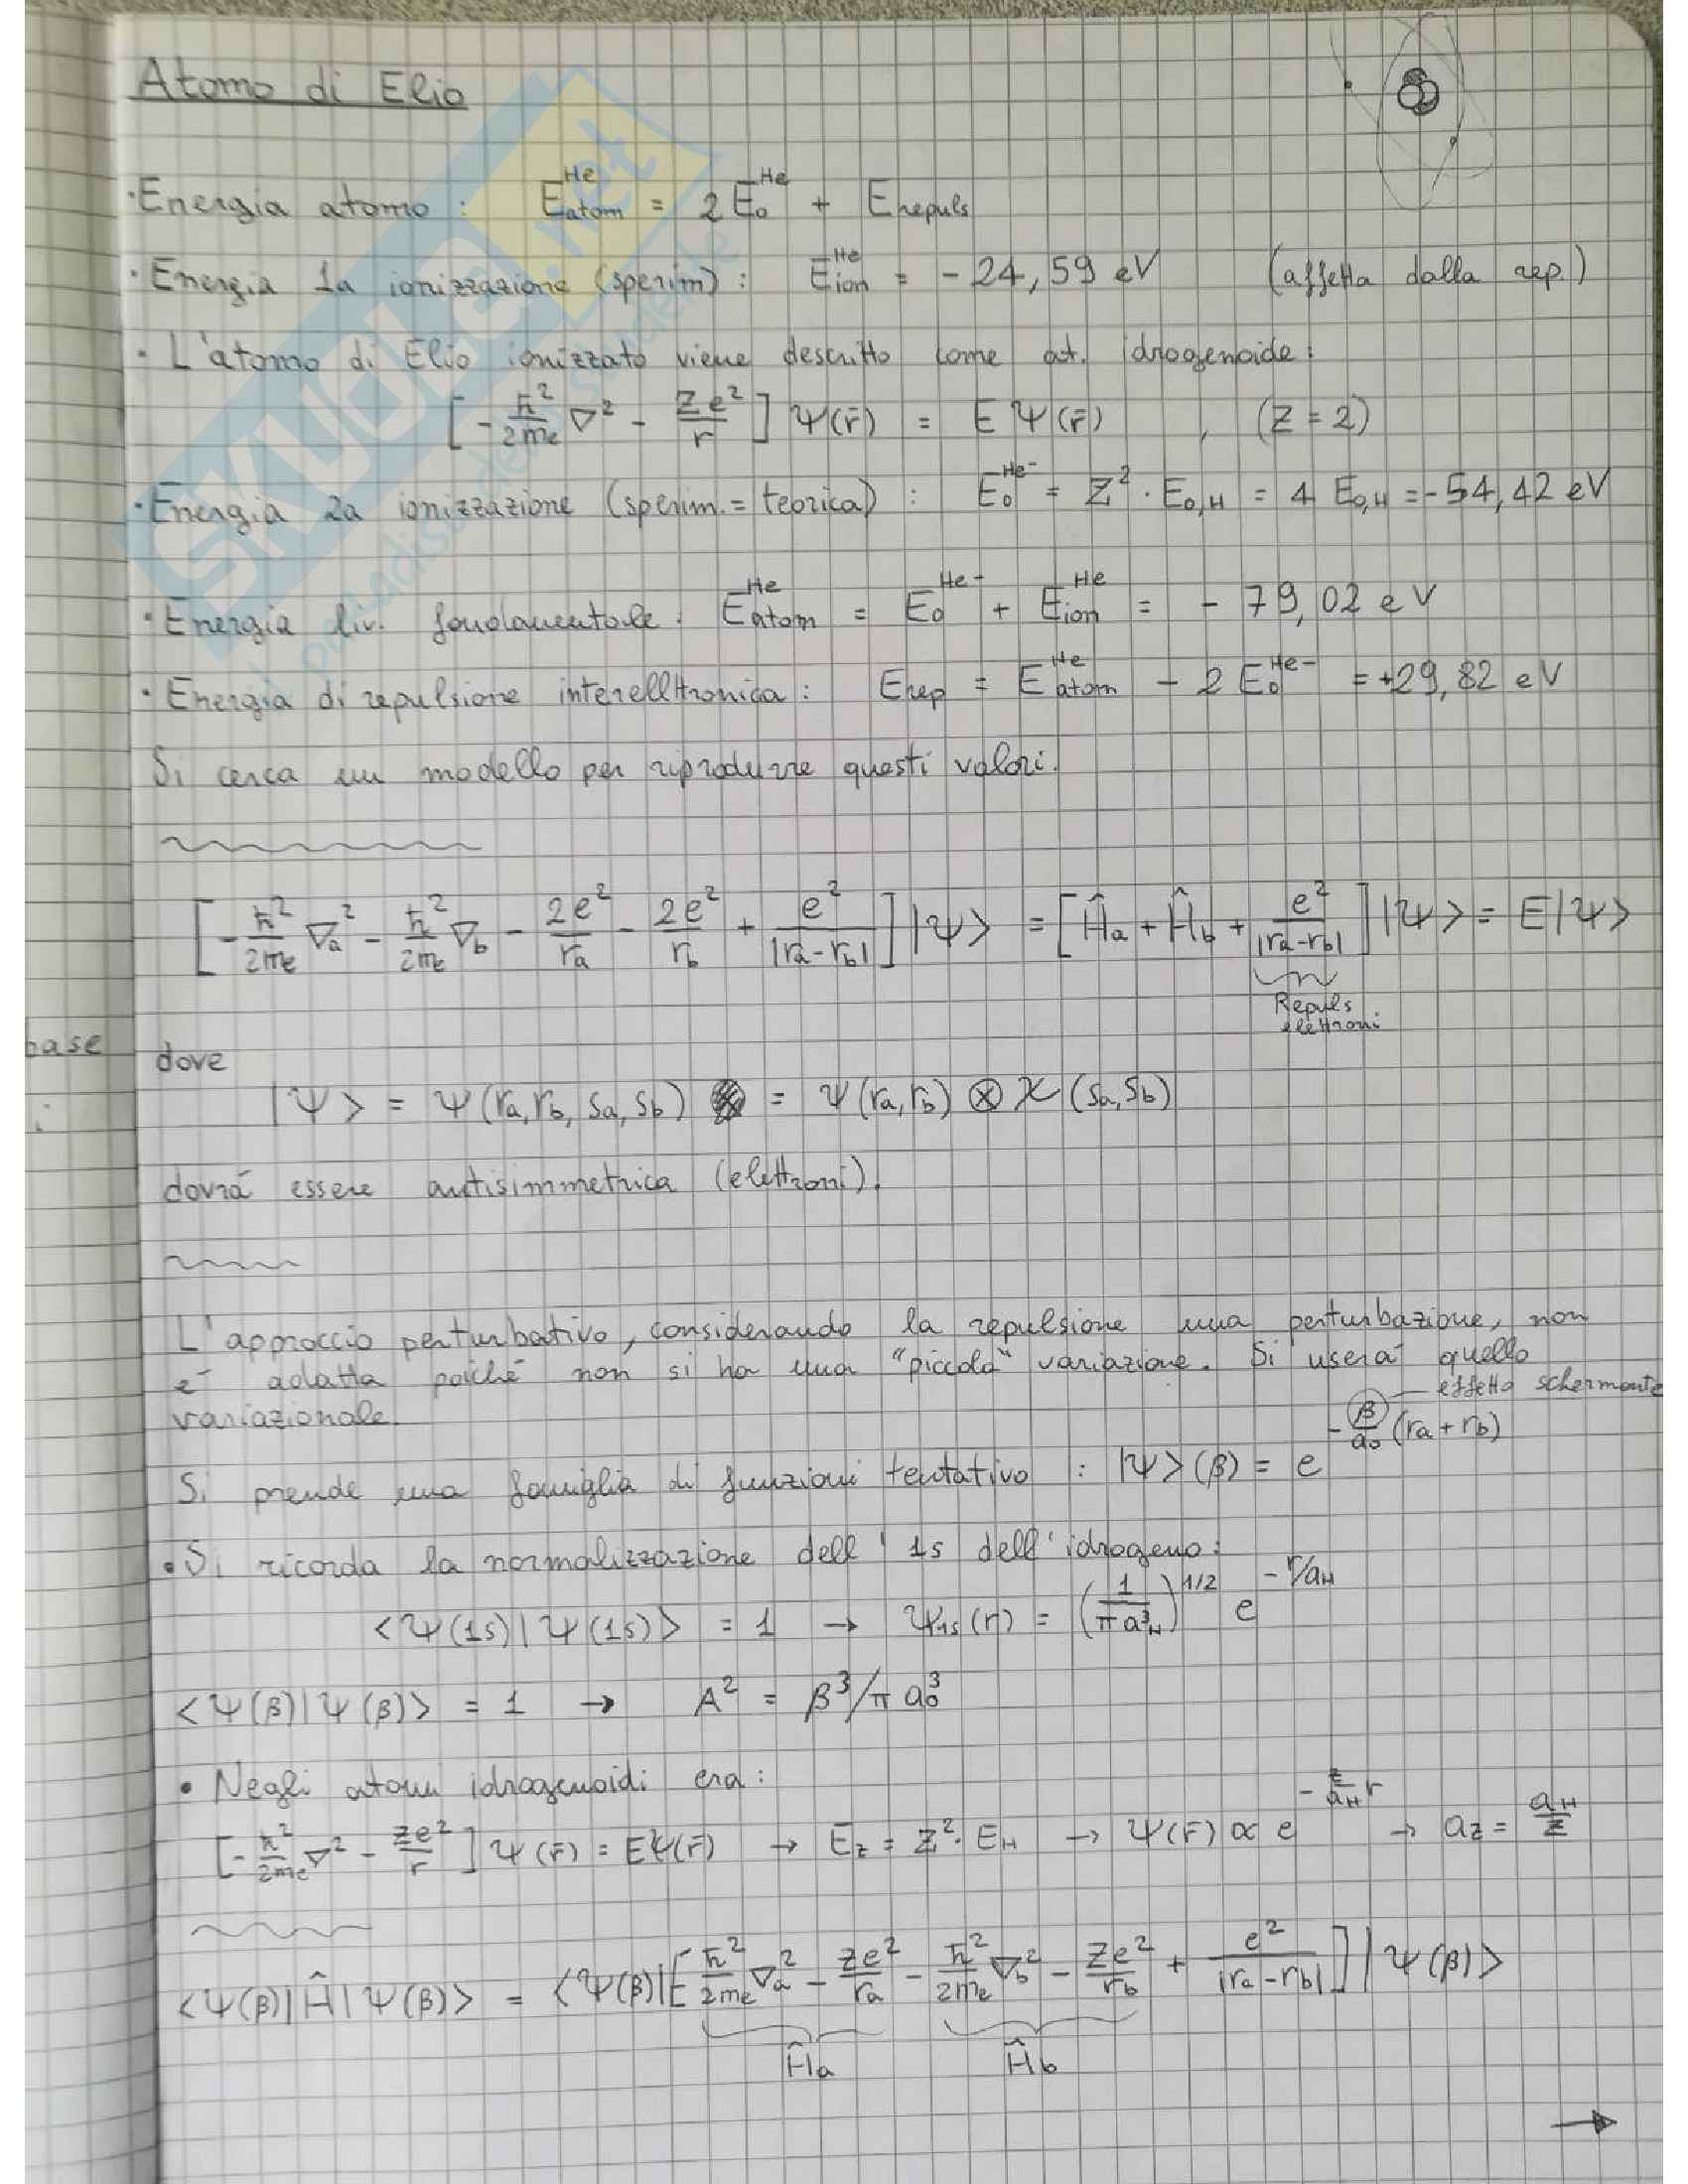 Atomo di Elio
· Energia atomo : E_atom^He = 2 E_0^He + E_repuls
· Energia 1a ionizzazione (sperim) : E_ion^He = - 24,59 eV (affetta dalla rep.)
· L'atomo di Elio ionizzato viene descritto come at. idrogenoide:
[-ħ²/2me ∇² - Ze²/r] Ψ(r̄) = E Ψ(r̄) , (Z = 2)
· Energia 2a ionizzazione (sperim. = teorica) : E_0^He- = Z² · E_0,H = 4 E_0,H = -54,42 eV
· Energia liv. fondamentale : E_atom^He = E_0^He- + E_ion^He = - 79,02 eV
· Energia di repulsione interelltronica : E_rep = E_atom^He - 2 E_0^He- = +29,82 eV
Si cerca un modello per riprodurre questi valori.
[-ħ²/2me ∇a² - ħ²/2me ∇b - 2e²/ra - 2e²/rb + e²/|ra-rb|] |Ψ> = [Ĥa + Ĥb + e²/|ra-rb|] |Ψ> = E|Ψ>
Repuls
elettroni
base
dove
|Ψ> = Ψ(ra, rb, sa, sb) = Ψ(ra, rb) ⊗ χ(sa, sb)
dovrá essere antisimmetrica (elettroni).
L'approccio perturbativo, considerando la repulsione una perturbazione, non
é adatta poiché non si ha una "piccola" variazione. Si userá quello
variazionale.
effetto schermante
Si prende una famiglia di funzioni tentativo : |Ψ>(β) = e^(-β/a0 (ra + rb))
• Si ricorda la normalizzazione dell' 1s dell'idrogeno:
<Ψ(1s)|Ψ(1s)> = 1 → Ψ1s(r) = (1/πa_H³)^1/2 e^(-r/aH)
<Ψ(β)|Ψ(β)> = 1 → A² = β³/π a0³
• Negli atomi idrogenoidi era:
[-ħ²/2me ∇² - Ze²/r] Ψ(r̄) = EΨ(r̄) → Ez = Z²· EH → Ψ(r̄) ∝ e^(-Z/aH r) → aZ = aH/Z
<Ψ(β)|Ĥ|Ψ(β)> = <Ψ(β)|[-ħ²/2me ∇a² - Ze²/ra - ħ²/2me ∇b² - Ze²/rb + e²/|ra-rb|]|Ψ(β)>
Ĥa Ĥb
→
SKUOLA.net